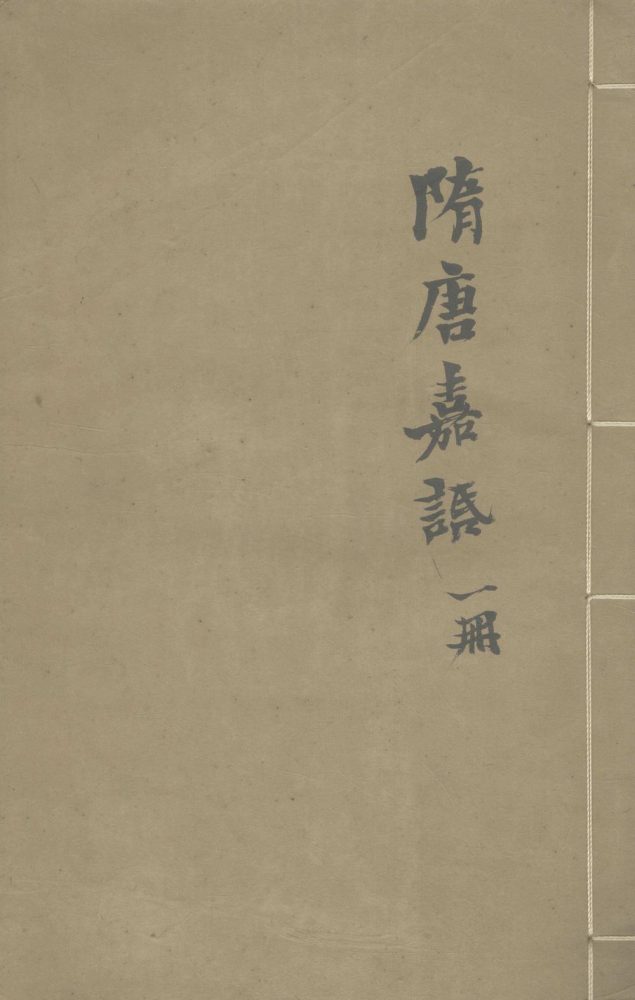 隋唐嘉話 一冊